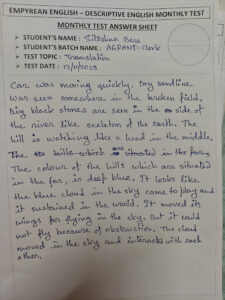 EMPYREAN ENGLISH – DESCRIPTIVE ENGLISH MONTHLY TEST
MONTHLY TEST ANSWER SHEET
➤ STUDENT'S NAME : Sulekha Bera
➤ STUDENT'S BATCH NAME : AGRANI-Clerk
➤ TEST TOPIC : Translation
➤ TEST DATE : 13/11/2023
Car was moving quickly. Dry sandline
was seen somewhere in the broken field.
Big black stones are seen in the side of
the river like eskeleton of the earth. The
hill is watching like a wad in the middle.
The hills which are situated in the far,
The colour of the hills which are situated
in the far, is deep blue. It looks like
the blue cloud in the sky came to play and
it sustained in the world. It moved its
wings for flying in the sky. But it could
not fly because of obstruction. The cloud
moved in the sky and interacts with each
other.